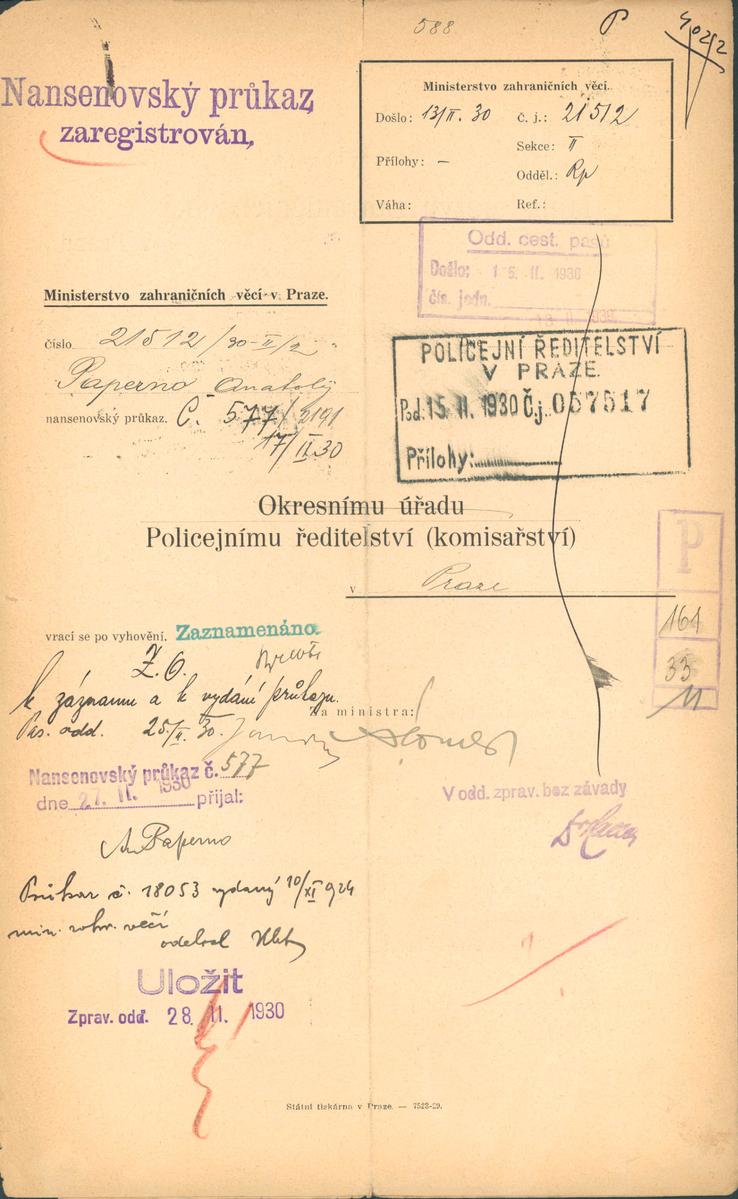 588
P
Nansenovský průkaz
zaregistrován,
Ministerstvo zahraničních věcí.
Došlo: 13/II. 30 Č. j.: 21512
Sekce: II
Přílohy: –
Odděl.: Rp
Váha: Ref.:
Odd. cest. pasů
Došlo: 15. II. 1930
čís. jedn.
Ministerstvo zahraničních věcí v Praze.
číslo 21512/30-II/2
Paperno Anatolij
nansenovský průkaz. Č. 577/2191
17/II.30
POLICEJNÍ ŘEDITELSTVÍ
V PRAZE.
Pod. 15. II. 1930 Č.j. 057517
Přílohy:
Okresnímu úřadu
Policejnímu ředitelství (komisařství)
v Praze
P
161
33
11
vrací se po vyhovění. Zaznamenáno
Z. O.
k záznamu a k vydání průkazu.
Pas. odd. 25./II. 30.
Za ministra:
Nansenovský průkaz č. 577
dne 27. II. 1930 přijal:
V odd. zprav. bez závady
A. Paperno
Průkaz č. 18053 vydaný 10/XI 924
min. zahr. věcí
odebral
Uložit
Zprav. odd. 28. II. 1930
Státní tiskárna v Praze. — 7523-29.